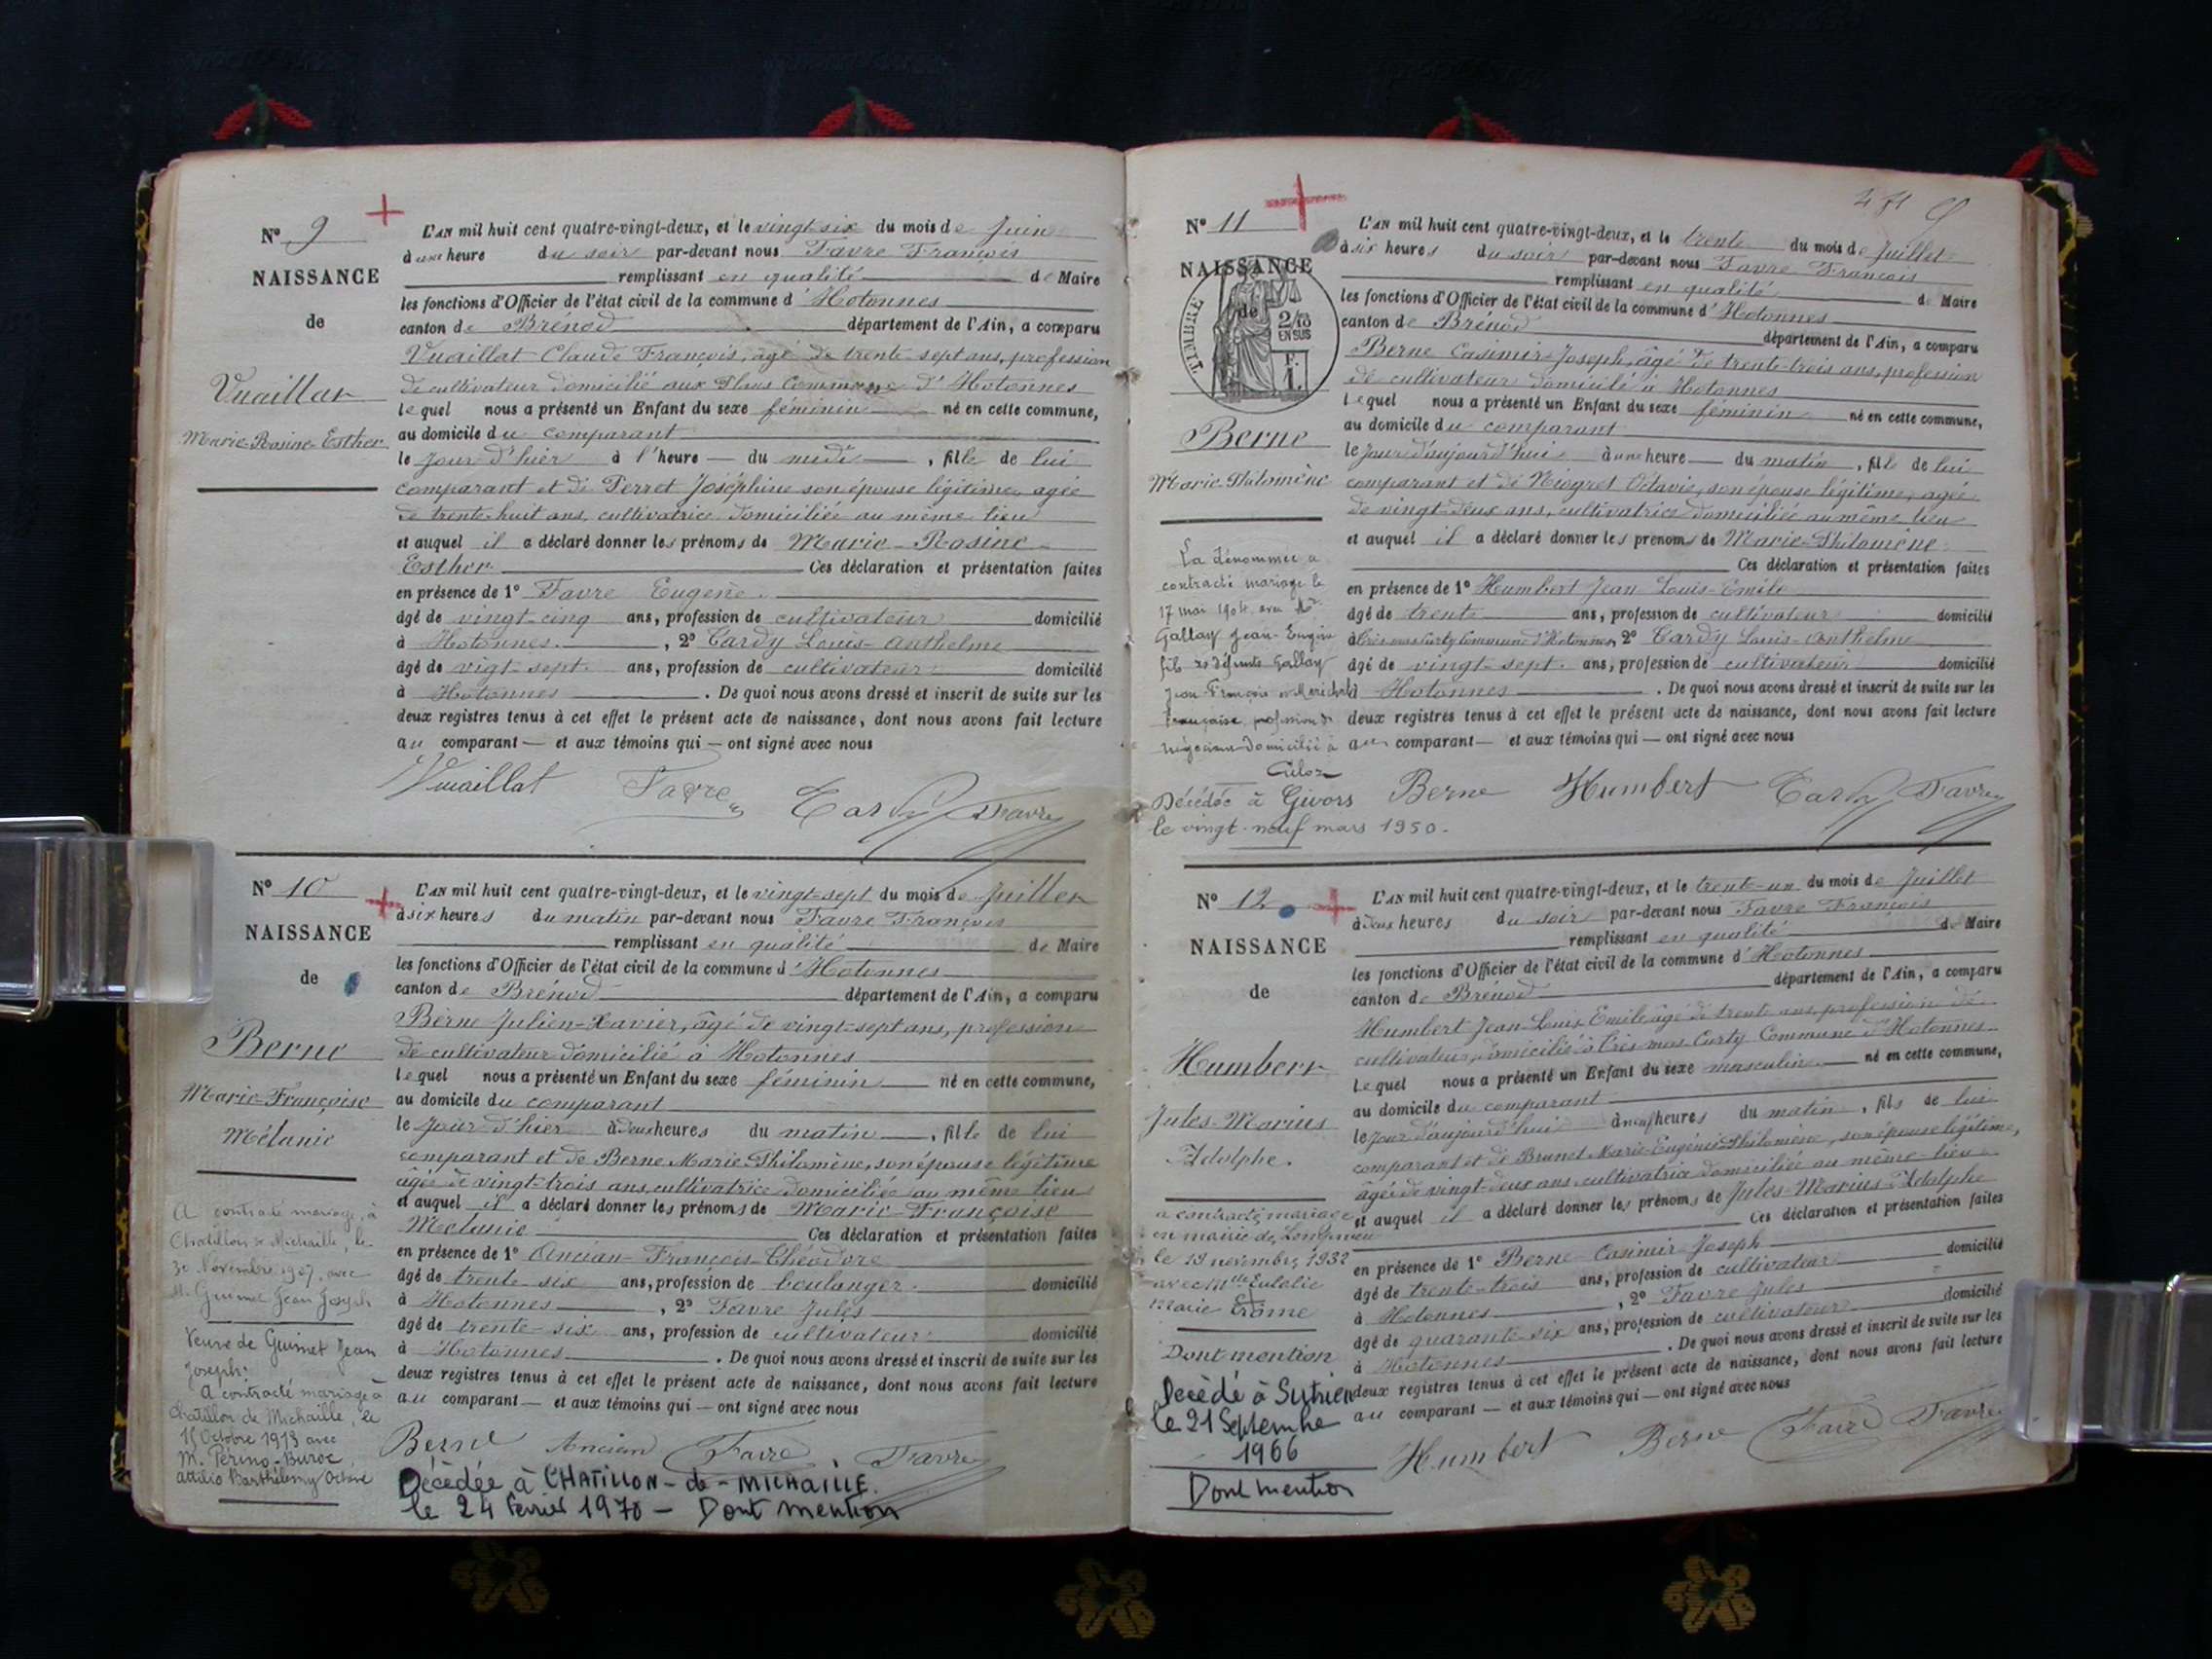 N° 9
NAISSANCE
de
Vuaillat
Marie-Rosine-Esther
L'AN mil huit cent quatre-vingt-deux, et le vingt-six du mois de Juin
à une heure du soir par-devant nous Favre François
remplissant en qualité de Maire
les fonctions d'Officier de l'état civil de la commune d'Hotonnes
canton de Brénod département de l'Ain, a comparu
Vuaillat Claude François, âgé de trente-sept ans, profession
de cultivateur domicilié aux Plans Commune d'Hotonnes
lequel nous a présenté un Enfant du sexe féminin né en cette commune,
au domicile du comparant
le jour d'hier à l'heure — du midi —, fille de lui
comparant et de Perret Joséphine son épouse légitime, agée
de trente-huit ans, cultivatrice domiciliée au même lieu
et auquel il a déclaré donner les prénoms de Marie-Rosine-
Esther Ces déclaration et présentation faites
en présence de 1° Favre Eugène
âgé de vingt-cinq ans, profession de cultivateur domicilié
à Hotonnes, 2° Tardy Louis-Anthelme
âgé de vigt-sept ans, profession de cultivateur domicilié
à Hotonnes. De quoi nous avons dressé et inscrit de suite sur les
deux registres tenus à cet effet le présent acte de naissance, dont nous avons fait lecture
au comparant — et aux témoins qui — ont signé avec nous
Vuaillat Favre Tardy Favre
N° 10
NAISSANCE
de
Berne
Marie-Françoise
Mélanie
A contracté mariage, à
Chatillon de Michaille, le
30 Novembre 1907, avec
M. Guimet Jean Joseph
Veuve de Guimet Jean
Joseph.
A contracté mariage à
Chatillon de Michaille, le
Octobre 1913 avec
M. Périno-Buroc,
Attilio Barthélemy Octave
L'AN mil huit cent quatre-vingt-deux, et le vingt-sept du mois de Juillet
à six heures du matin par-devant nous Favre François
remplissant en qualité de Maire
les fonctions d'Officier de l'état civil de la commune d'Hotonnes
canton de Brénod département de l'Ain, a comparu
Berne Julien-Xavier, âgé de vingt-sept ans, profession
de cultivateur domicilié à Hotonnes
lequel nous a présenté un Enfant du sexe féminin né en cette commune,
au domicile du comparant
le jour d'hier à deux heures du matin —, fille de lui
comparant et de Berne Marie Philomène, son épouse légitime
âgée de vingt-trois ans, cultivatrice domiciliée au même lieu
et auquel il a déclaré donner les prénoms de Marie-Françoise
Mélanie Ces déclaration et présentation faites
en présence de 1° Ancian-François-Théodore
âgé de trente-six ans, profession de boulanger domicilié
à Hotonnes, 2° Favre Jules
âgé de trente-six ans, profession de cultivateur domicilié
à Hotonnes. De quoi nous avons dressé et inscrit de suite sur les
deux registres tenus à cet effet le présent acte de naissance, dont nous avons fait lecture
au comparant — et aux témoins qui — ont signé avec nous
Berne Ancian Favre Favre
Décédée à CHATILLON-de-MICHAILLE.
le 24 Février 1970 — Dont mention
N° 11
NAISSANCE
de
TIMBRE
2/10
EN SUS
F.
1.
Berne
Marie-Philomène
La dénommée a
contracté mariage le
17 mai 1904 avec
Gallay Jean-Eugène
fils de défunts Gallay
Jean-François et
Françoise, profession de
négociant domicilié à
Culoz
Décédée à Givors
le vingt-neuf mars 1950.
L'AN mil huit cent quatre-vingt-deux, et le trente du mois de Juillet
à six heures du soir par-devant nous Favre François
remplissant en qualité de Maire
les fonctions d'Officier de l'état civil de la commune d'Hotonnes
canton de Brénod département de l'Ain, a comparu
Berne Casimir-Joseph, âgé de trente-trois ans, profession
de cultivateur domicilié à Hotonnes
lequel nous a présenté un Enfant du sexe féminin né en cette commune,
au domicile du comparant
le jour d'aujourd'hui à une heure — du matin, fille de lui
comparant et de Niogret Octavie, son épouse légitime, agée
de vingt-deux ans, cultivatrice domiciliée au même lieu
et auquel il a déclaré donner les prénoms de Marie-Philomène
Ces déclaration et présentation faites
en présence de 1° Humbert Jean Louis-Emile
âgé de trente ans, profession de cultivateur domicilié
à Commune d'Hotonnes, 2° Tardy Louis-Anthelme
âgé de vingt-sept ans, profession de cultivateur domicilié
à Hotonnes. De quoi nous avons dressé et inscrit de suite sur les
deux registres tenus à cet effet le présent acte de naissance, dont nous avons fait lecture
au comparant — et aux témoins qui — ont signé avec nous
Berne Humbert Tardy Favre
N° 12
NAISSANCE
de
Humbert
Jules-Marius
Adolphe.
a contracté mariage
en mairie de
le 19 novembre 1932
avec Mlle Eulalie
Marie
Dont mention
Décédé à Sutrieu
le 21 Septembre
1966
Dont mention
L'AN mil huit cent quatre-vingt-deux, et le trente-un du mois de Juillet
à deux heures du soir par-devant nous Favre François
remplissant en qualité de Maire
les fonctions d'Officier de l'état civil de la commune d'Hotonnes
canton de Brénod département de l'Ain, a comparu
Humbert Jean-Louis Emile âgé de trente ans, profession de
cultivateur, domicilié à Commune d'Hotonnes
lequel nous a présenté un Enfant du sexe masculin né en cette commune,
au domicile du comparant
le jour d'aujourd'hui à neuf heures du matin, fils de lui
comparant et de Brunet Marie-Eugénie-Philomène, son épouse légitime,
âgée de vingt-deux ans, cultivatrice domiciliée au même lieu
et auquel il a déclaré donner les prénoms de Jules-Marius-Adolphe
Ces déclaration et présentation faites
en présence de 1° Berne Casimir Joseph
âgé de trente-trois ans, profession de cultivateur domicilié
à Hotonnes, 2° Favre Jules
âgé de quarante-six ans, profession de cultivateur domicilié
à Hotonnes. De quoi nous avons dressé et inscrit de suite sur les
deux registres tenus à cet effet le présent acte de naissance, dont nous avons fait lecture
au comparant — et aux témoins qui — ont signé avec nous
Humbert Berne Favre Favre